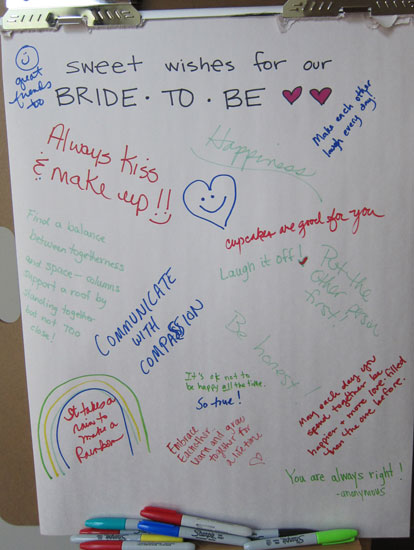 sweet wishes for our
BRIDE · TO · BE
great
friends
too
Make each other
laugh every day!
Always Kiss
& make up!!
Happiness
Find a balance
between togetherness
and space - columns
support a roof by
standing together
but not too
close!
cupcakes are good for you
Laugh it off!
Put the
other person
first!
COMMUNICATE
WITH
COMPASSION
Be honest
It's ok not to
be happy all the time.
So true!
It takes a
rain to
make a
Rainbow
Embrace
Each other
Learn and grow
together for
a life time
May each day you
spend together be
happier + more love filled
than the one before.
You are always right!
- anonymous
Sharpie